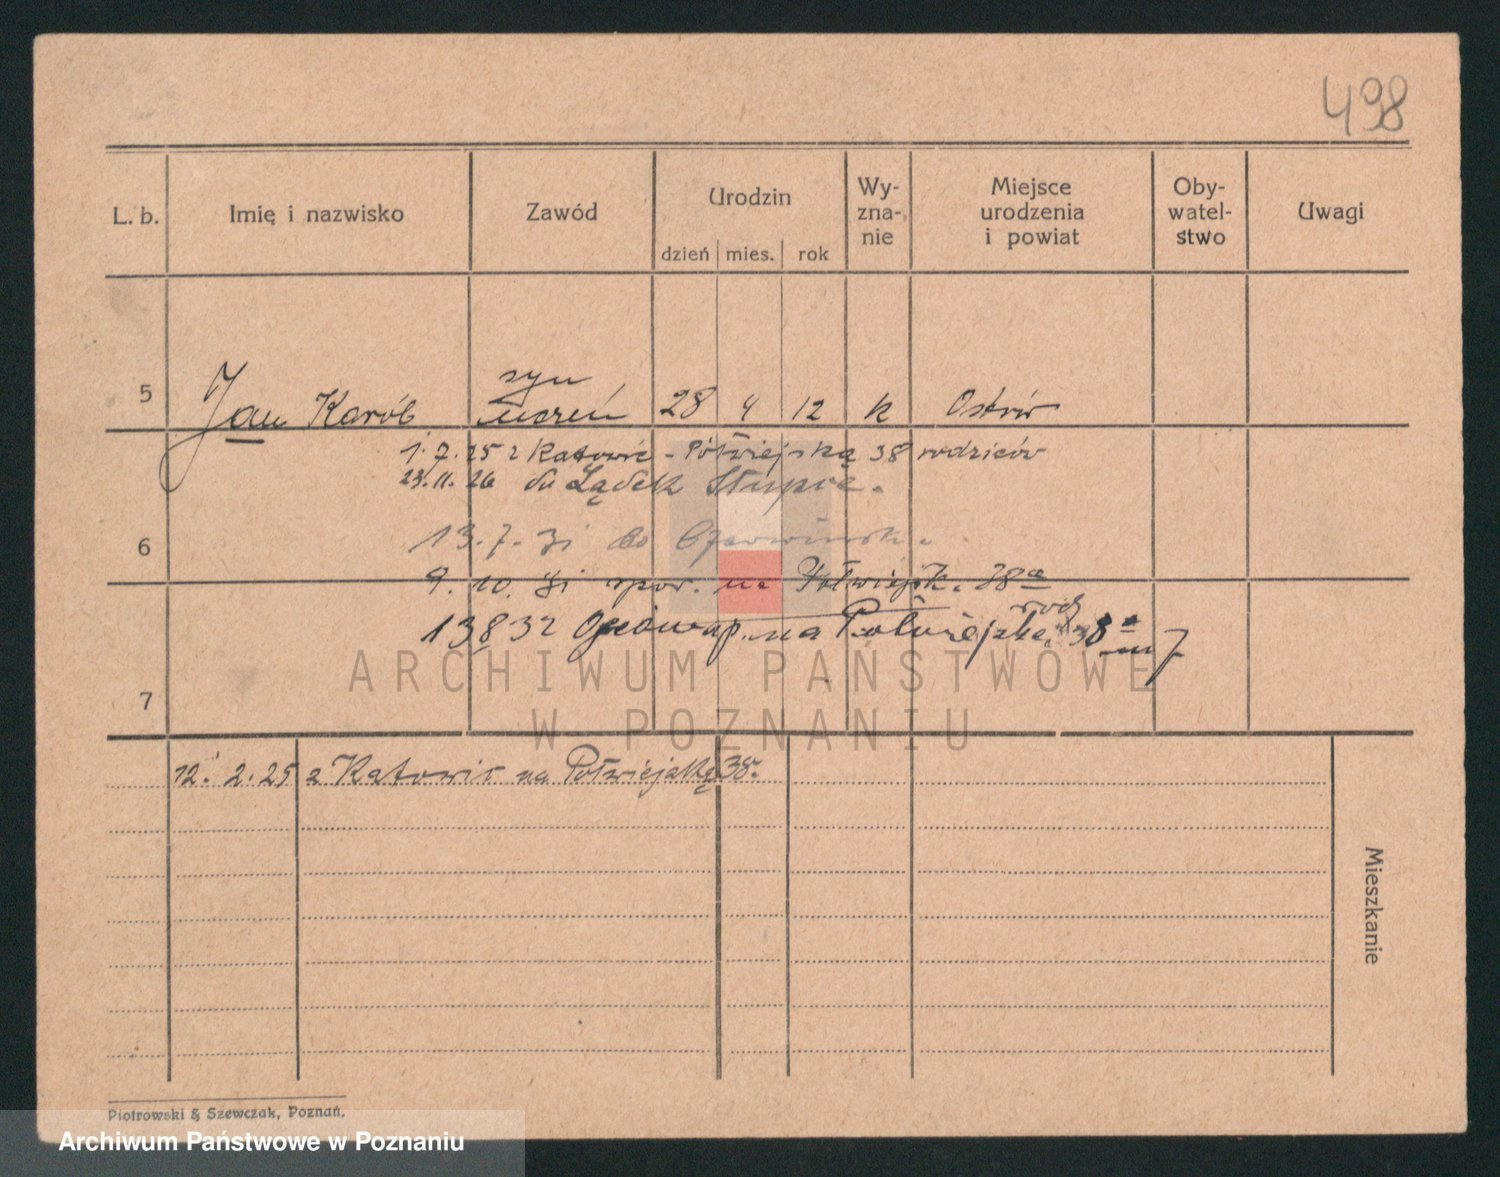 498
L. b. Imię i nazwisko Zawód Urodzin dzień mies. rok Wy-zna-nie Miejsce urodzenia i powiat Oby-watel-stwo Uwagi
syn
5 Jan Karól uczeń 28 4 12 k Ostrów
1.7.25 z Katowic - Półwiejska 38 rodziców
23.11.26 do Lądek Słupca.
6 13.7.31 do
9.10.31 spor. na Półwiejsk. 38a
rodz
13 8 32 na Półwiejską 38a m 7
ARCHIWUM PAŃSTWOWE
7
W POZNANIU
12. 2. 25 z Katowic na Półwiejską 38.
Mieszkanie
Piotrowski & Szewczak, Poznań.
Archiwum Państwowe w Poznaniu